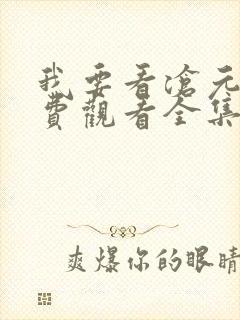 我要看滄元
費觀看全集
爽爆你的眼睛